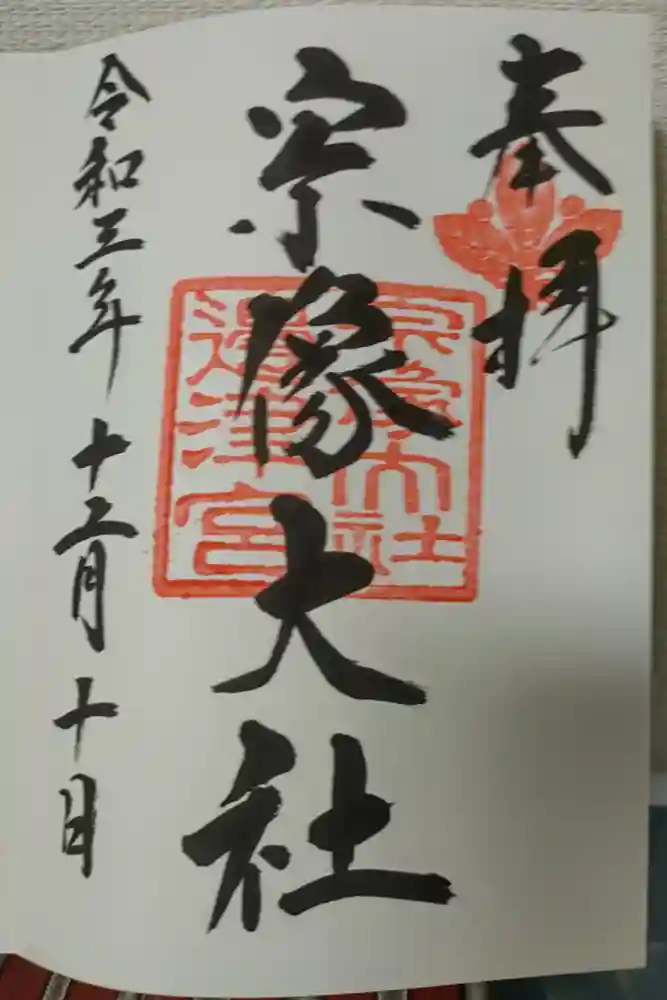 奉拝
宗像大社
宗像大社
邊津宮
令和三年十二月十日